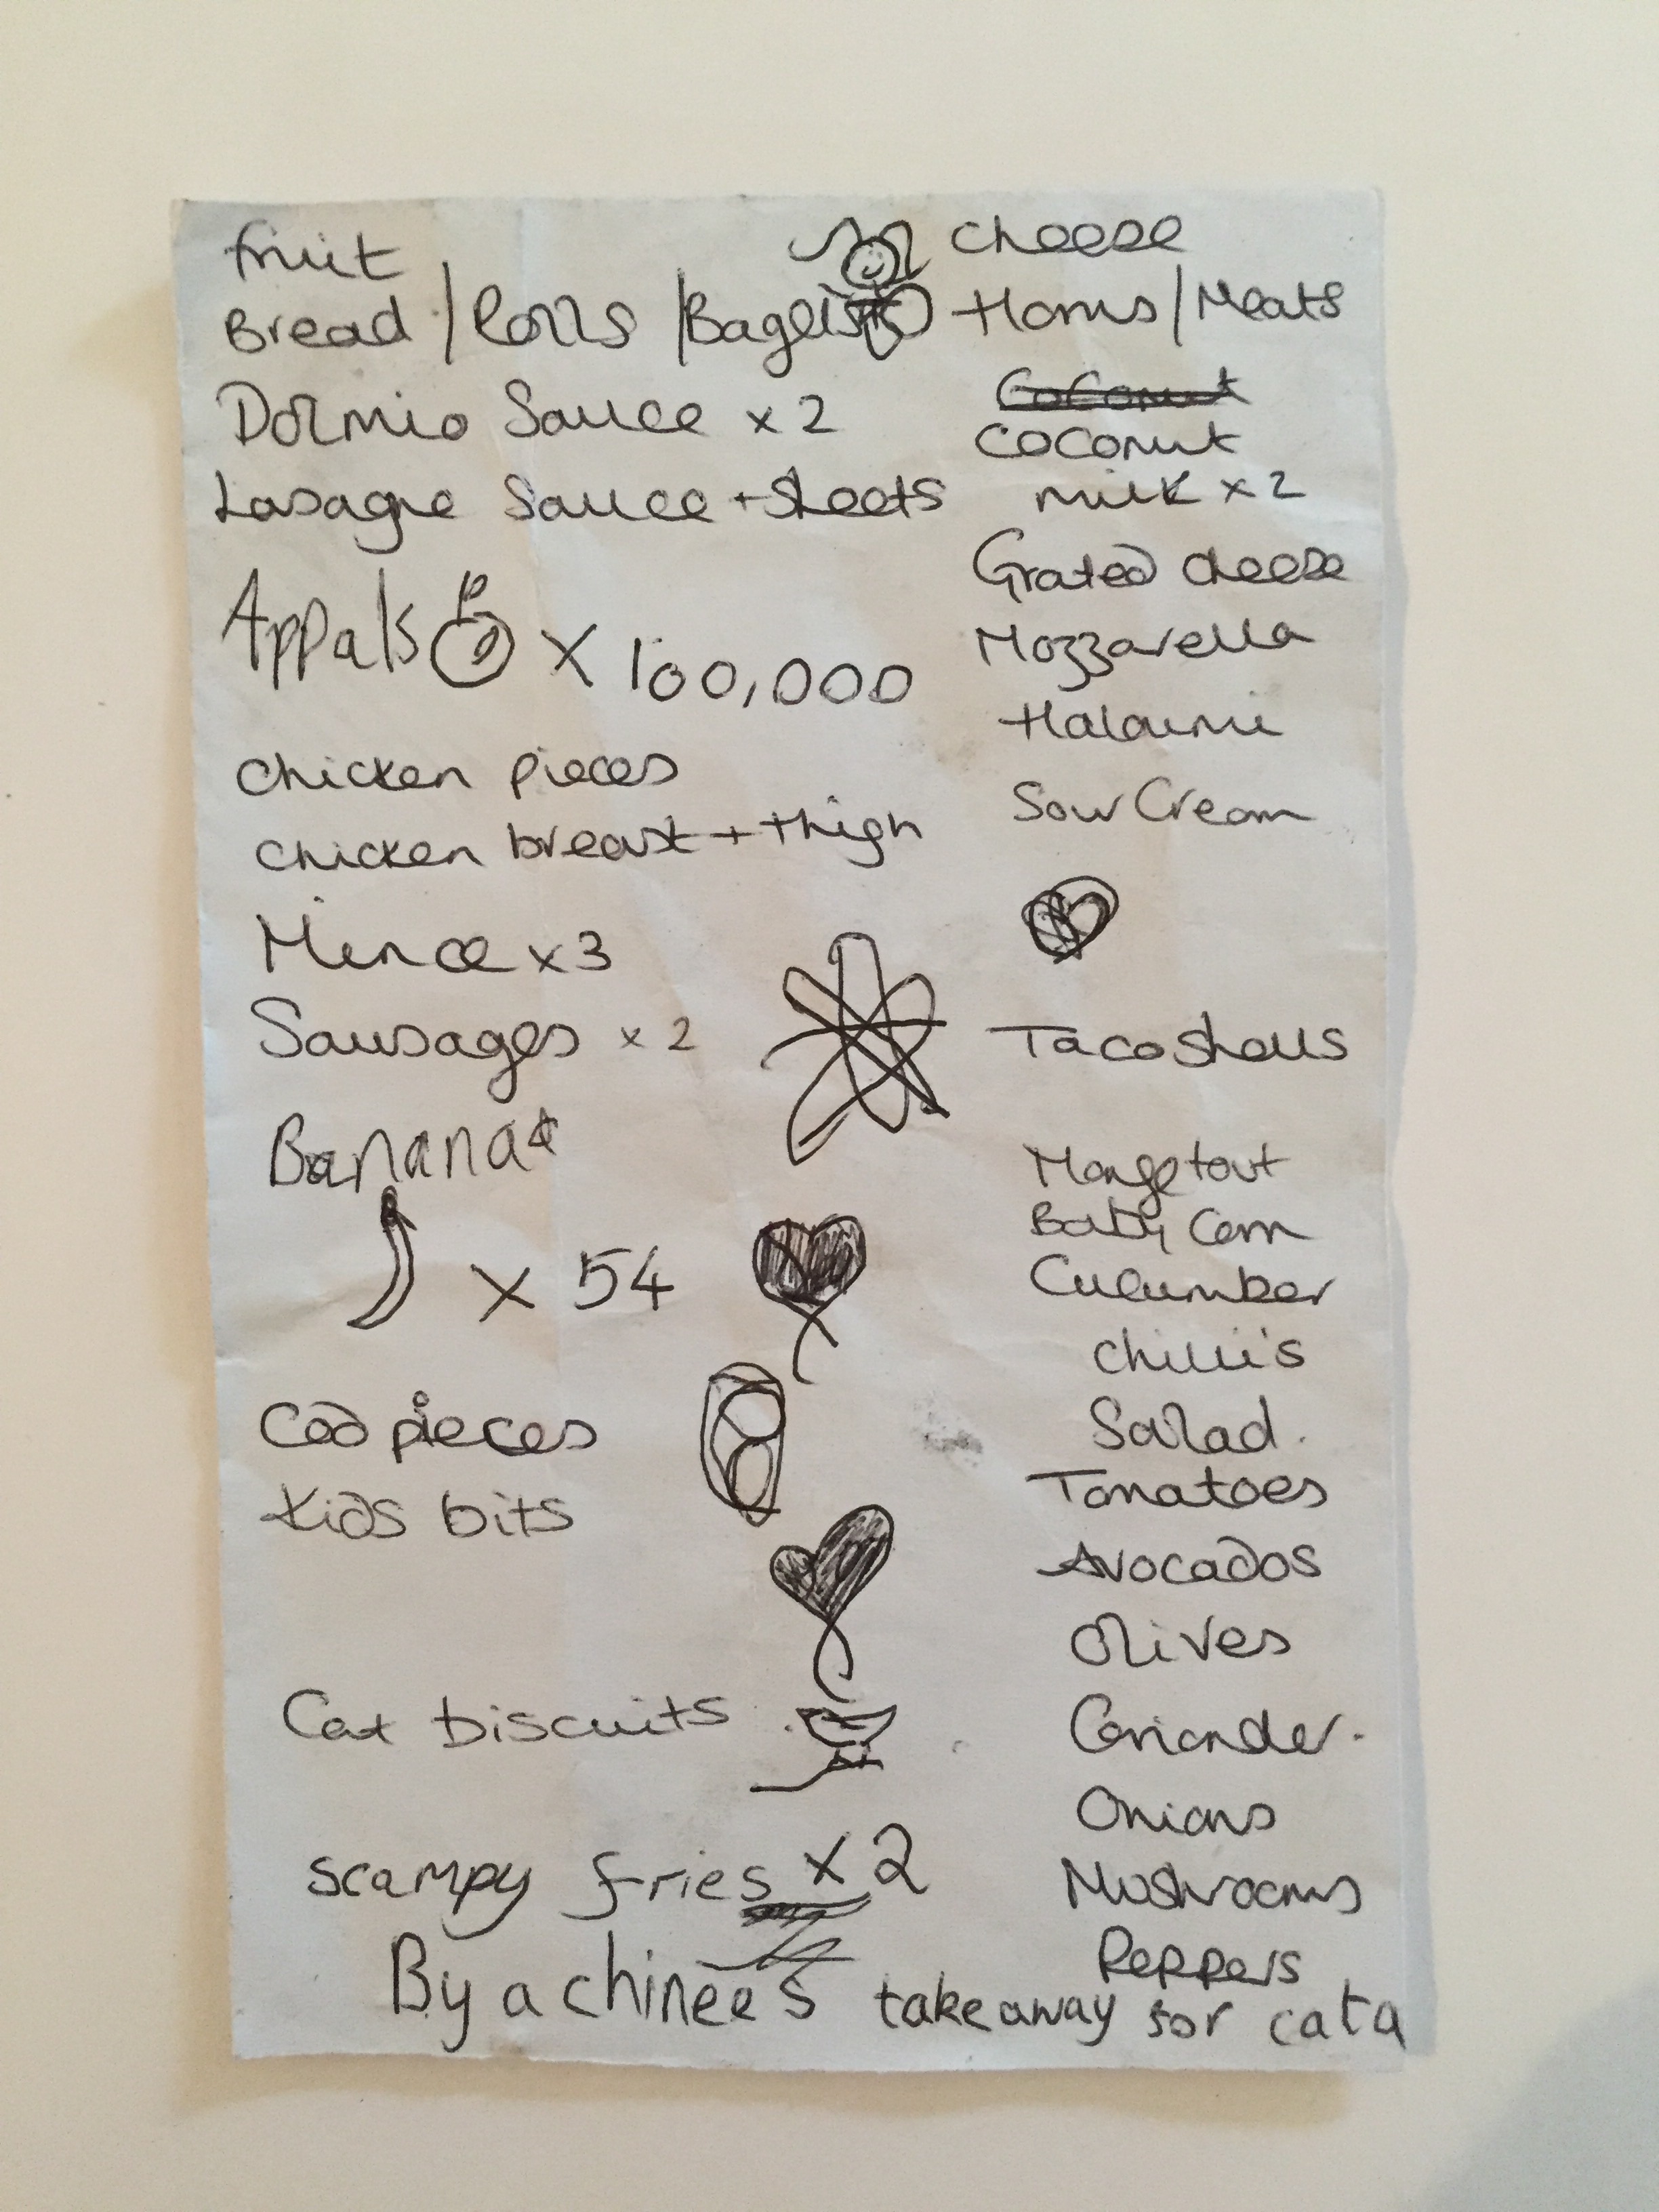 fruit
Bread / Rolls / Bagels
Dolmio Sauce x 2
Lasagne Sauce + Sheets
Appals x 100,000
chicken pieces
chicken breast + thigh
Mince x 3
Sausages x 2
Bananas
x 54
Cod pieces
Kids bits
Cat biscuits
scampy fries x 2
By a chinees takeaway for cata
cheese
Hams / Meats
Coconut
Coconut
milk x 2
Grated cheese
Mozzarella
Haloumi
Sour Cream
Taco shells
Mangetout
Baby Corn
Cucumber
Chilli's
Salad.
Tomatoes
Avocados
Olives
Coriander.
Onions
Mushrooms
Peppers